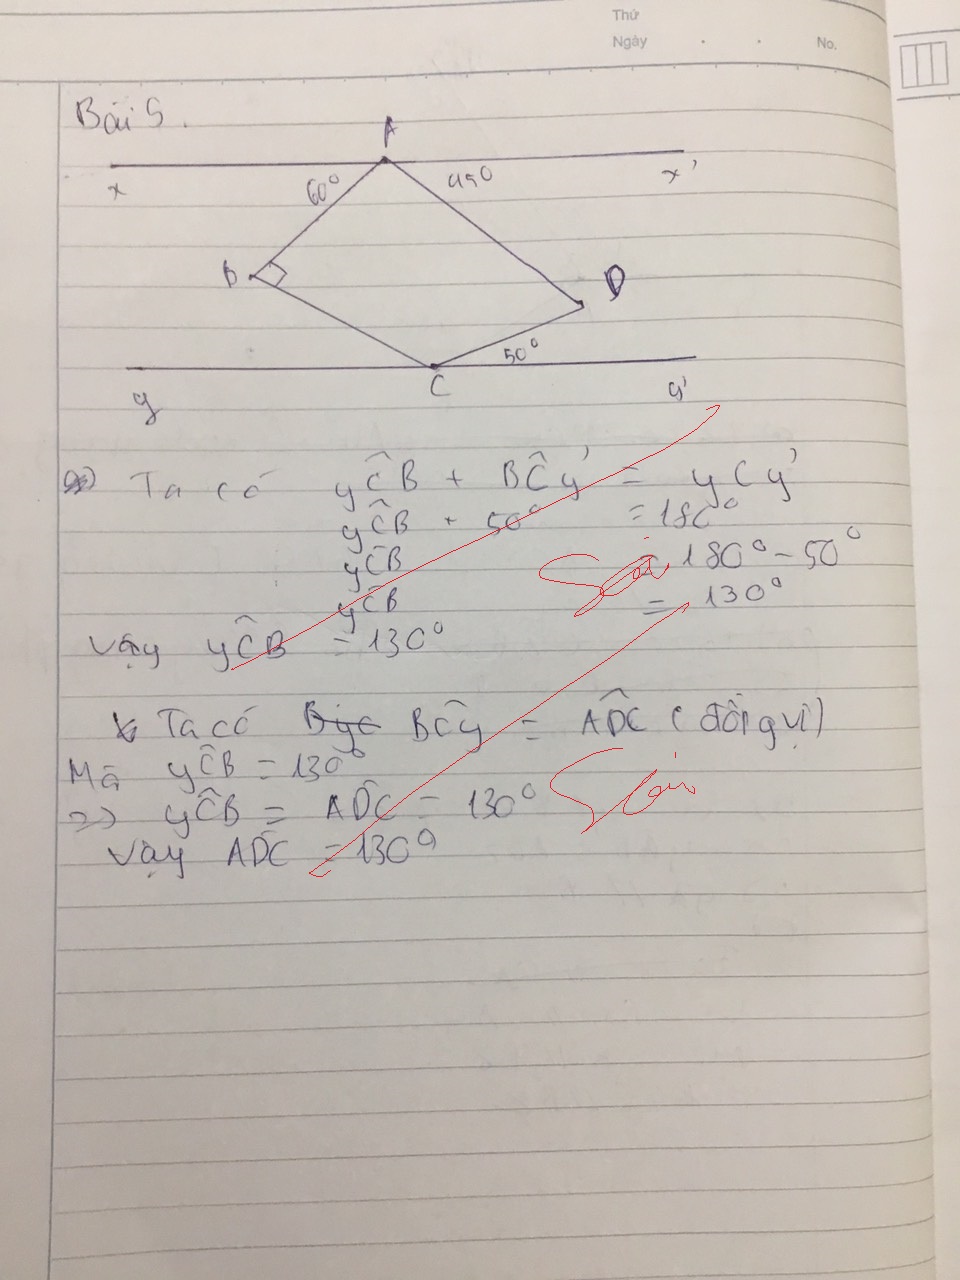 Thứ
Ngày . . No.
Bài 5.
A
x 60° 45° x'
B D
50°
y C y'
Ta có yĈB + BĈy' = yCy'
yĈB + 50° = 180°
yĈB = 180° - 50°
yĈB = 130°
Vậy yĈB = 130°
Ta có BĈy = ADC (đồng vị)
Mà yĈB = 130°
=> yĈB = ADC = 130°
Vậy ADC = 130°
Sai
Sai